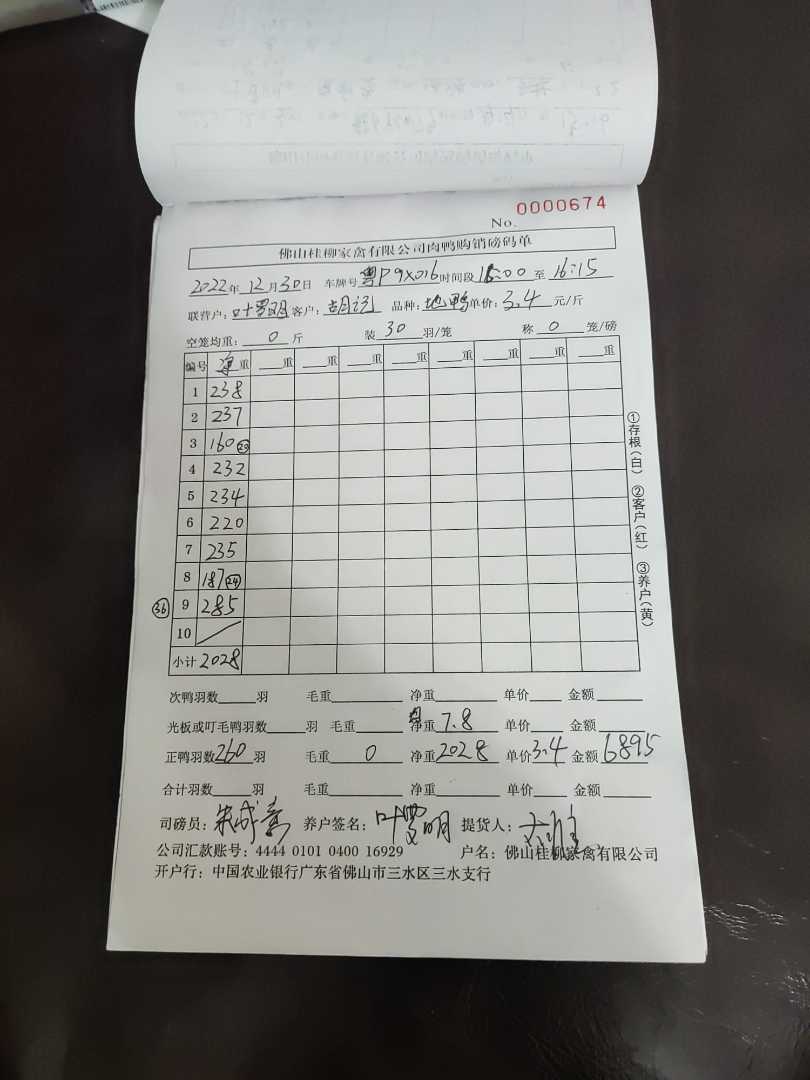 No. 0000674
佛山桂柳家禽有限公司肉鸭购销磅码单
2022年12月30日 车牌号粤P9X016时间段15:00至16:15
联营户:叶罗明客户:胡 品种:地鸭单价:3.4元/斤
空笼均重:0斤 装30羽/笼 称0笼/磅
编号 净重 重 重 重 重 重 重 重 重
1 238
2 237
3 160 ㉓
4 232
5 234
6 220
7 235
8 187 ㉔
㊱ 9 285
10 /
小计 2028
①存根(白) ②客户(红) ③养户(黄)
次鸭羽数 羽 毛重 净重 单价 金额
光板或叮毛鸭羽数 羽 毛重 净重7.8 单价 金额
正鸭羽数260羽 毛重0 净重2028 单价3.4 金额6895
合计羽数 羽 毛重 净重 单价 金额
司磅员: 养户签名:叶罗明 提货人:
公司汇款账号:4444 0101 0400 16929 户名:佛山桂柳家禽有限公司
开户行:中国农业银行广东省佛山市三水区三水支行